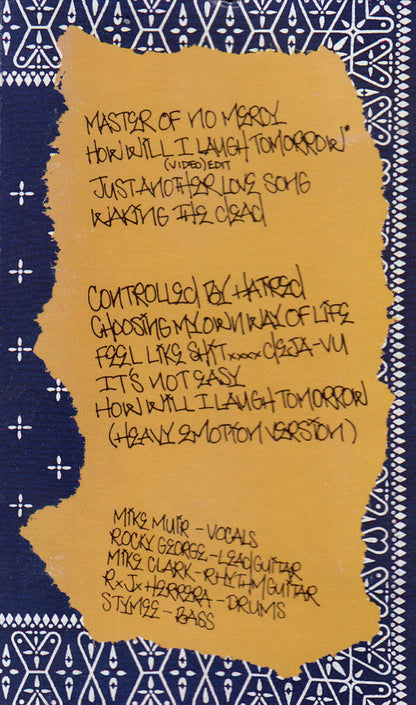 MASTER OF NO MERCY
HOW WILL I LAUGH TOMORROW*
(VIDEO) EDIT
JUST ANOTHER LOVE SONG
WAKING THE DEAD
CONTROLLED BY HATRED
CHOOSING MY OWN WAY OF LIFE
FEEL LIKE SHIT xxxx DEJA-VU
IT'S NOT EASY
HOW WILL I LAUGH TOMORROW
(HEAVY EMOTION VERSION)
MIKE MUIR - VOCALS
ROCKY GEORGE - LEAD GUITAR
MIKE CLARK - RHYTHM GUITAR
RxJx HERRERA - DRUMS
STYMEE - BASS